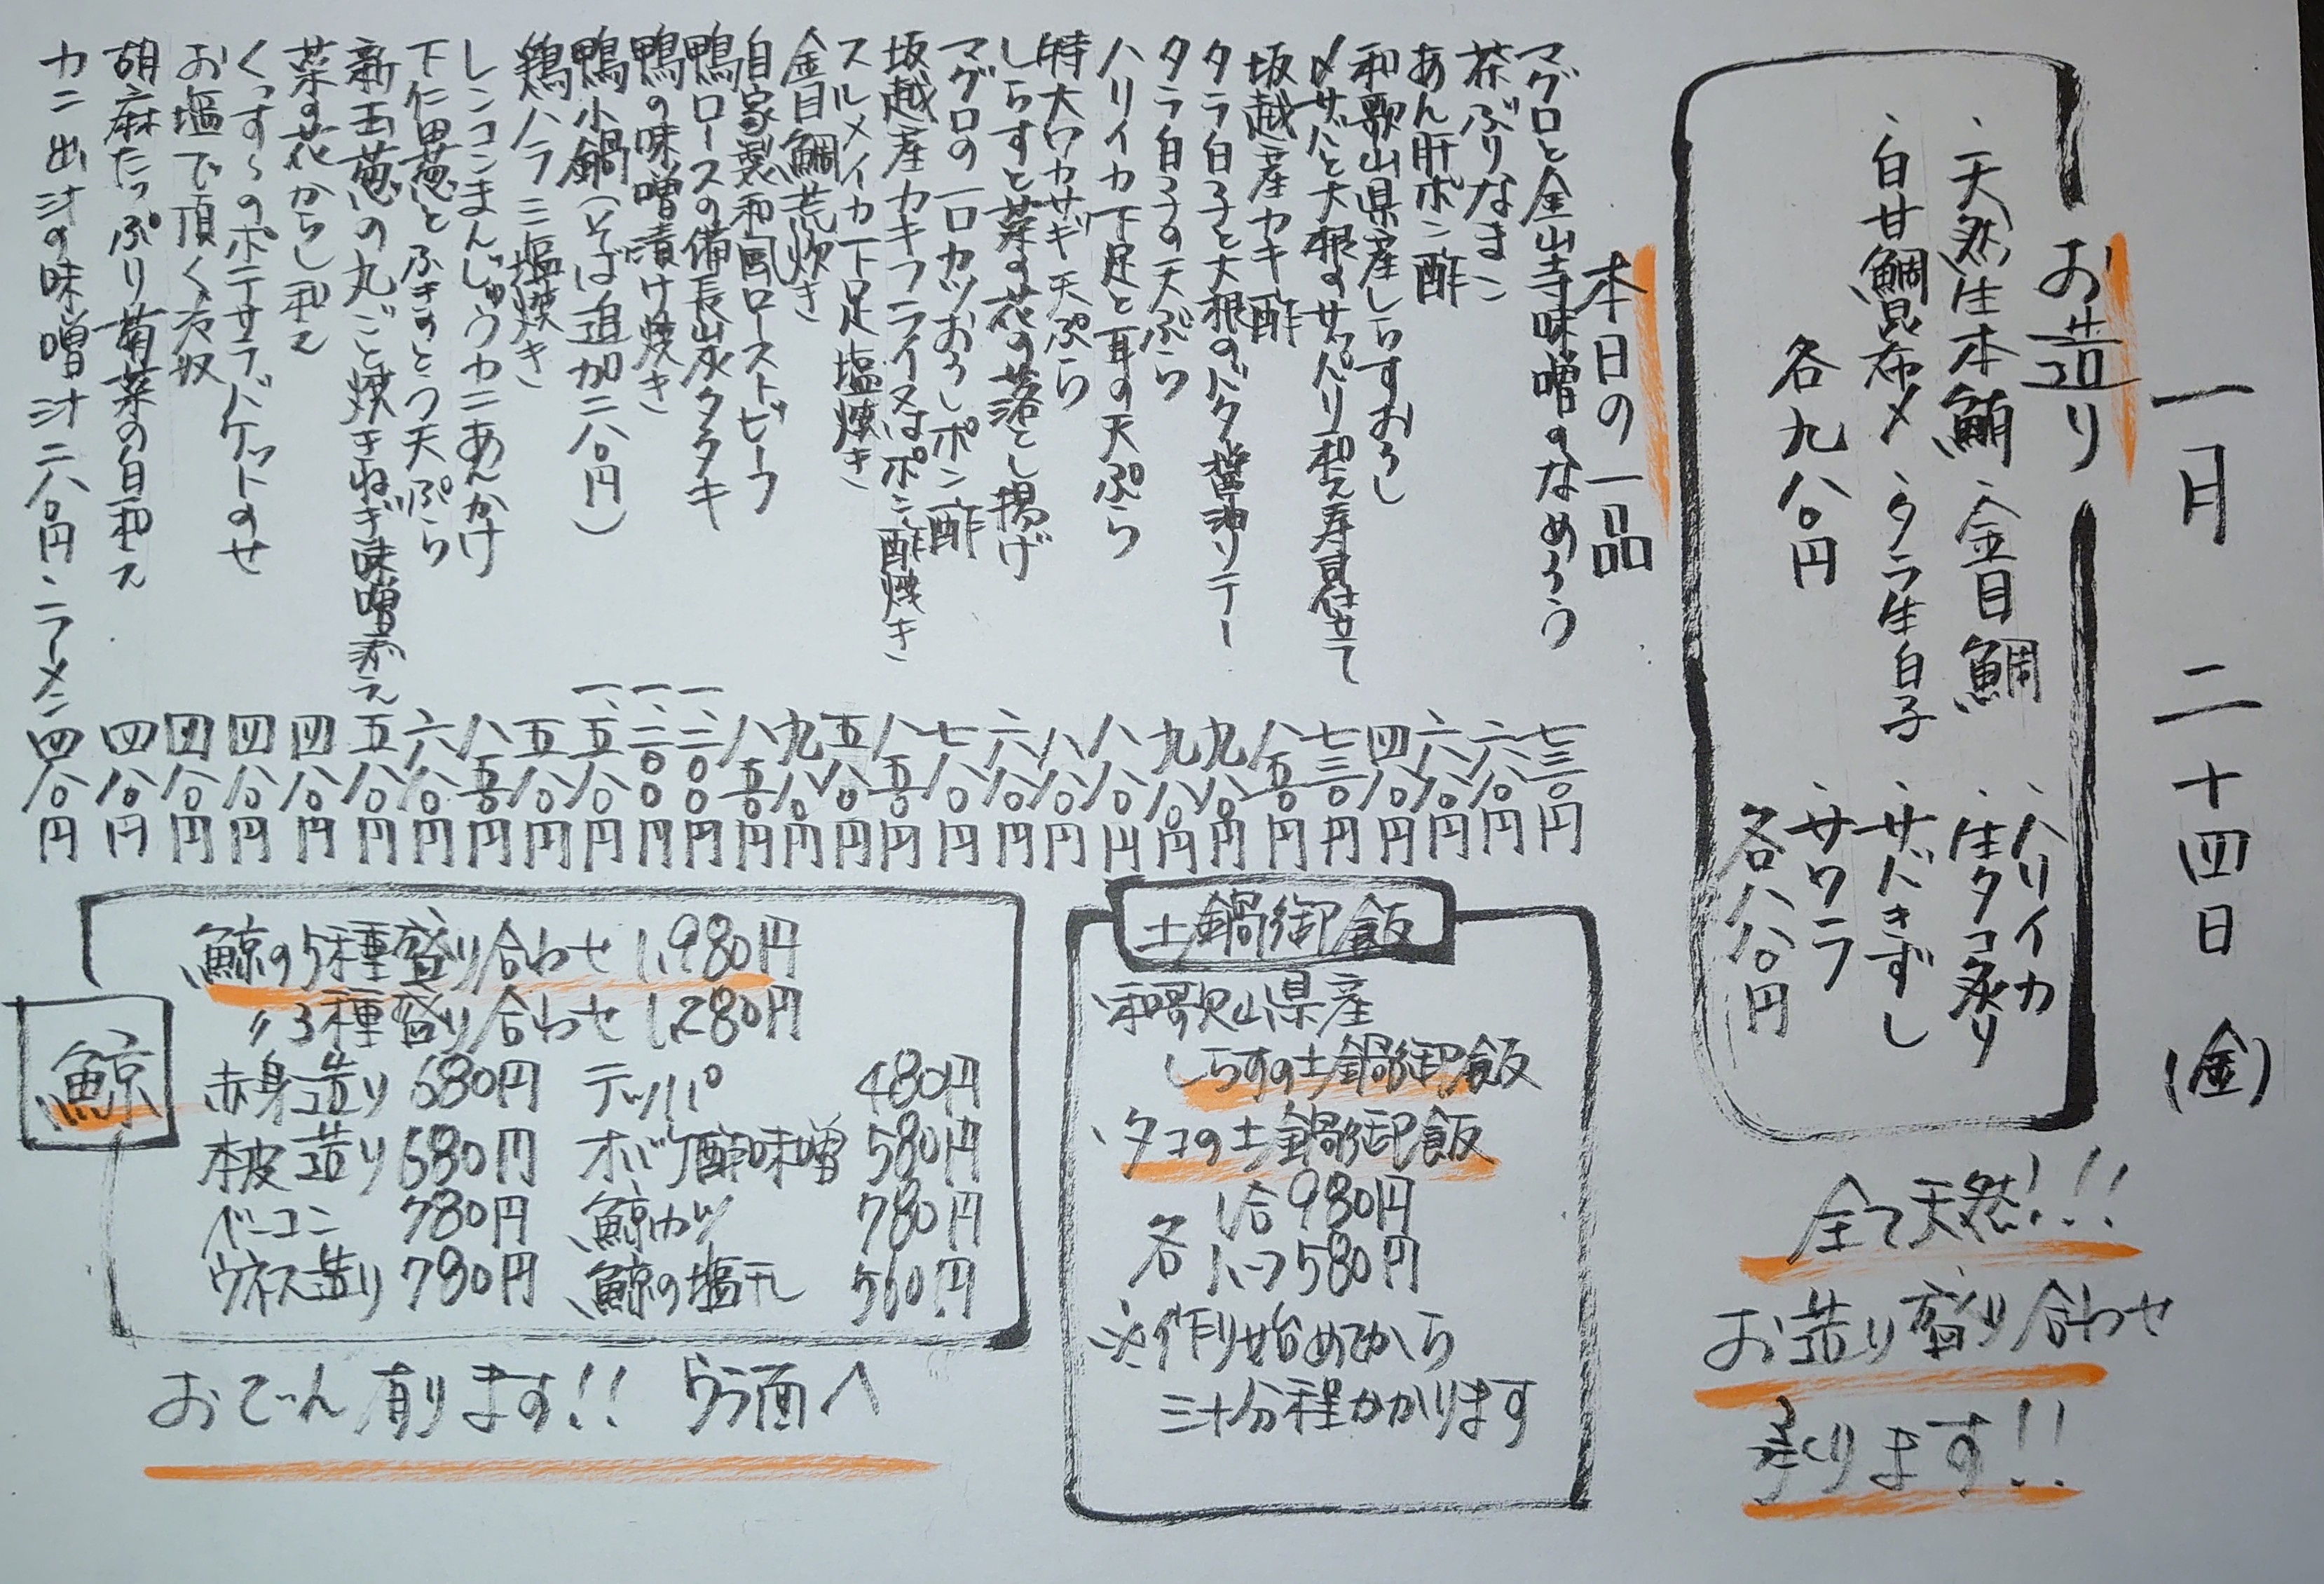 一月 二十四日 (金)
お造り
、天然生本鮪 、金目鯛 、ハリイカ
、白甘鯛昆布〆 、タラ生白子 、生タコ炙り
各九八〇円
、サバきずし
、サワラ
各八八〇円
全て天然!!!
お造り盛り合わせ
承ります!!
本日の一品
マグロと金山寺味噌のなめろう 七三〇円
茶ぶりなまこ 六八〇円
あん肝ポン酢 六八〇円
和歌山県産しらすおろし 四八〇円
〆サバと大根のサッパリ和え寿司仕立て 七三〇円
坂越産カキ酢 八五〇円
タラ白子と大根のバター醤油ソテー 九八〇円
タラ白子の天ぷら 九八〇円
ハリイカ下足と耳の天ぷら 八八〇円
特大ワカサギ天ぷら 八八〇円
しらすと菜の花の落とし揚げ 六八〇円
マグロの一口カツおろしポン酢 七八〇円
坂越産カキフライ又はポン酢焼き 八五〇円
スルメイカ下足塩焼き 五八〇円
金目鯛荒炊き 九八〇円
自家製和風ローストビーフ 八五〇円
鴨ロースの備長炭タタキ 一、二〇〇円
鴨の味噌漬け焼き 一、二〇〇円
鴨小鍋(そば追加二八〇円) 一、五八〇円
鶏ハラミ塩焼き 五八〇円
レンコンまんじゅうカニあんかけ 八五〇円
下仁田葱とふきのとう天ぷら 六八〇円
新玉葱の丸ごと焼きねぎ味噌添え 五八〇円
菜の花からし和え 四八〇円
くっすーのポテサラバケットのせ 四八〇円
お塩で頂く冷奴 四八〇円
胡麻たっぷり菊菜の白和え 四八〇円
カニ出汁の味噌汁二八〇円、ニラーメン 四八〇円
土鍋御飯
、和歌山県産
しらすの土鍋御飯
、タコの土鍋御飯
各 1合980円
ハーフ580円
※作り始めてから
三十分程かかります
鯨
鯨の5種盛り合わせ 1,980円
〃3種盛り合わせ 1,280円
赤身造り 680円 テッパ 480円
本皮造り 680円 オバケ酢味噌 580円
ベーコン 780円 鯨カツ 780円
ウネス造り 780円 鯨の塩干し 560円
おでん有ります!! ウラ面へ